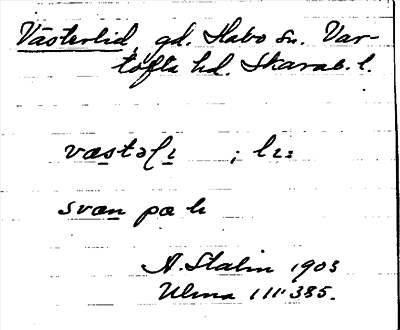 Västerlid, gd. Habo sn. Var-
tofta hd. Skarab. l.
væstəlı ; lı:
svæn pæ h
A. Stalin 1903
Ulma 111:385.